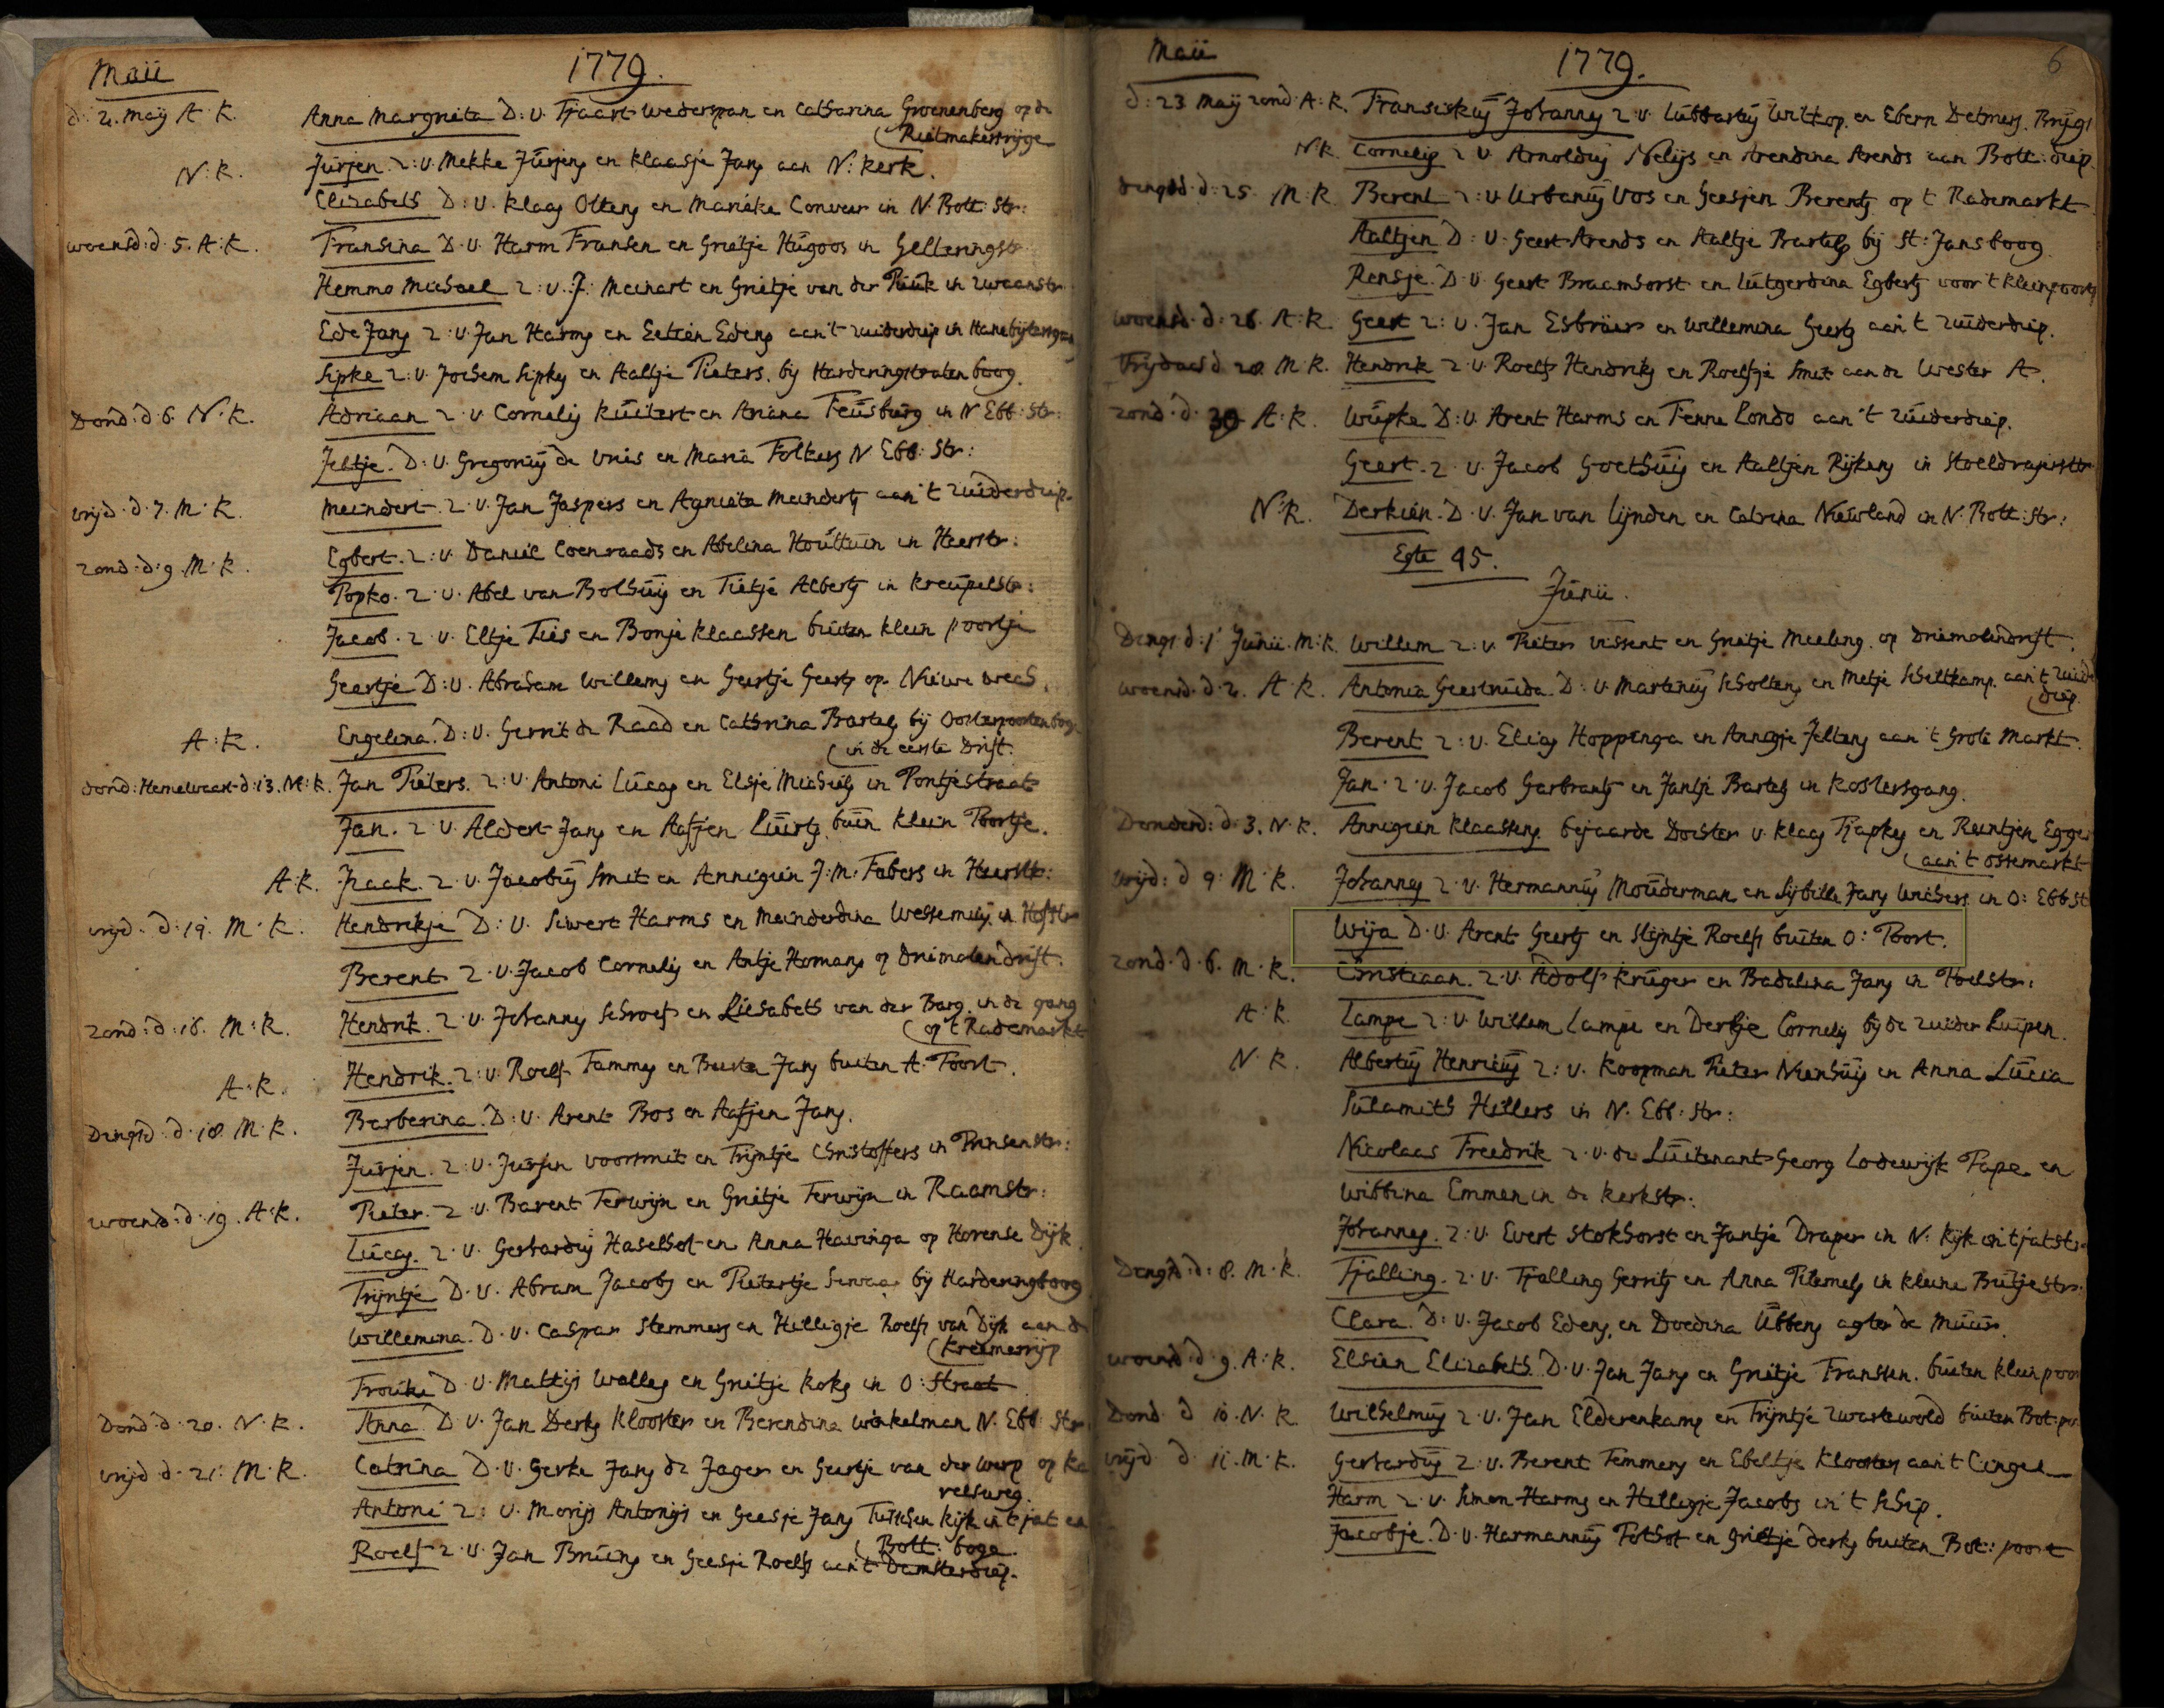 Maii 1779.
d. 2. Maij A. K. Anna Margrieta D: v. Tjaart Wederspan en Catharina Groenenberg op de
(Rietmakersrijge
N: K. Jurjen. Z: v. Mekke Jurjens en Klaasje Jans aan N: Kerk.
Elizabeth D: v. Klaas Oltens en Marieke in N. Bott: Str:
woensd: d. 5. A: K. Fransina D. v. Harm Fransen en Grietje Hugoos in Gelkeringstr
Hemmo Michael Z: v. J: Meinart en Grietje van der in Zwaanstr.
Ede Jans Z: v. Jan Harms en Eettien Edens aan't Zuiderdiep in
Sipke Z: v. Jochem Sipkes en Aaltje Pieters. bij Harderingstraten boog.
Dond: d. 6. N. K. Adriaan Z. v. Cornelis Kuitert en Ariana in N Ebb: Str:
Jeltje. D: v. Gregorius de Vries en Maria Folkers N Ebb: Str:
vrijd. d. 7. M. K. Meindert. Z. v. Jan Jaspers en Agnieta Meinderts aan't Zuiderdiep.
zond: d: 9. M: K. Egbert. Z: v. Daniel Coenraads en Abelina Houttuin in Heerstr:
Popko. Z. v. Abel van Bolhuis en Tietje Alberts in Kreupelstr:
Jacob. Z. v. Eltje Ties en Bonje Klaassen buiten klein poortje
Geertje D: v. Abraham Willems en Geertje Geerts op Nieuwe weeg.
A: K. Engelina. D: v. Gerrit de Raad en Cathrina Bartels bij Oosterpoortenboge
(in de eerste Drift.
dond: Hemelvaart d: 13. N: K. Jan Pieters. Z: v. Antoni Lucas en Elsje Michiels in Pontjestraat
Jan. Z. v. Aldert Jans en Aafjen Luirts buiten klein Poortje.
A: K. Izaak. Z. v. Jacobus Smit en Annigien J: M: Fabers in Heerstr:
vrijd. d: 14. M. K. Hendrikje D: v. Siwert Harms en Meinderdina in Hofstr
Berent Z. v. Jacob Cornelis en Antje Homans op Driemolendrift.
zond: d: 16. M: K. Hendrik. Z. v. Johannes Schroef en Liesabeth van der Barg. in de gang
(op 't Rademarkt
A: K. Hendrik. Z: v. Roelf Tammes en Jans buiten A: Poort.
Dingsd: d. 18. M. K. Barberina. D: v. Arent Bos en Aafjen Jans.
Jurjen. Z: v. Jurjen Voorsmit en Trijntje Christoffers in Prinsenstr:
woensd: d. 19. A: K. Pieter. Z. v. Barent Terwijn en Grietje Terwijn in Raamstr:
Lucas. Z. v. Gerhardus Haselhof en Anna Havinga op Horense Dijk.
Trijntje D. v. Abram Jacobs en Pietertje bij Harderingboog
Willemina. D. v. Caspar Stemmers en Hilligje Roelfs van Dijk aan de
(Kremerrijp
Frouke D. v. Mattijs Walles en Grietje Koks in O: Straat
Dond: d: 20. N. K. Anna D. v. Jan Derks Klooster en Berendina Winkelman N. Ebb: Str
vrijd d. 21: M. K. Catrina D. v. Gerke Jans de Jager en Geertje van der Werp op Ka
relsweg.
Antoni Z: v. Morijs Antonijs en Geesje Jans Tussen Kijk in't jat en
(Bott: boge.
Roelf Z. v. Jan Bruins en Geesje Roelfs aan't Damsterdiep.
Maii 1779. 6
d: 23 Maij zond: A: K. Fransiskus Johannes Z. v. Lubbartus Witkop. en Ebern Detmers. Brugs
N. K. Cornelis Z v. Arnoldus Nelijs en Arendina Arends aan Bott: diep.
dingsd. d: 25. M: K. Berent Z: v. Urbanus Vos en Geesjen Berents op 't Rademarkt
Aaltjen D: v. Geert Arends en Aaltje Bartels bij St: Jansboog.
Rensje. D. v. Geert Braamhorst en Lutgerdina Egberts voor 't klein poortj
woensd. d: 26. A. K. Geert Z: v. Jan Esbrüer en Willemina Geerts aan 't Zuiderdiep.
Vrijdag d 28. M. K. Hendrik Z. v. Roelf Hendriks en Roelfje Smit aan de Wester A.
zond: d. 30 A: K. Wupke D: v. Arent Harms en Fenne Londo aan 't Zuiderdiep.
Geert. Z. v. Jacob Goethuis en Aaltjen Rijkens in Stoeldraierstr
N: K. Derkien. D. v. Jan van Lijnden en Catrina Nieuwland in N. Bott: Str:
Egte 45.
Junii.
Dings d: 1 Junii. M: K. Willem Z: v. Pieter Vissent en Grietje Meeling. op Driemolendrift.
woensd. d. 2. A. K. Antonia Geertruida. D: v. Martinus Scholtens en Metje Schiltkamp. aan't Zuid
(diep.
Berent Z: v. Elias Hoppinga en Annigje Jeltens aan 't Grote Markt.
Jan. Z. v. Jacob Garbrants en Jantje Bartels in Kostersgang.
Donderd: d. 3. N. K. Annigien Klaassens bejaarde Dochter v. Klaas Tjapkes en Reintjen Egges
(aan 't ossemarkt
vrijd: d 4: M. K. Johannes Z. v. Hermannus Mouderman en Sijbilla Jans Wichers in O: Ebb st
Wija D. v. Arent Geerts en Stijntje Roelfs buiten O: Poort.
zond. d. 6. M. K. Christiaan. Z. v. Adolf Kruger en Badalina Jans in Poelstr:
A. K. Lampe Z: v. Willem Lampe en Dertje Cornelis bij de Zuider Kuipen.
N. K. Albertus Henricus Z: v. Koopman Pieter Nienhuis en Anna Lucia
Sulamith Hillers in N. Ebb: Str:
Nicolaas Freedrik Z. v. de Luitenant Georg Lodewijk Pape en
Wibbina Emmen in de Kerkstr:
Johannes. Z: v. Evert Stokhorst en Jantje Draper in N: Kijk in tjatstr
Dingsd: d: 8. M. K. Tjalling. Z. v. Tjalling Gerrits en Anna in kleine Butjestr:
Clara. D: v. Jacob Edens, en Doedina Ubbens agter de Muur.
woensd. d. 9. A: K. Elsien Elizabeth. D. v. Jan Jans en Grietje Franssen. buiten klein poor
Dond. d 10. N. K Wilhelmus Z. v. Jan Elderenkamp en Trijntje Zwartewold buiten Bot: po
vrijd d. 11. M. K. Gerhardus Z: v. Berent Temmens en Ebeltje Klooster aan't Cingel
Harm Z. v. Simon Harms en Hilligje Jacobs in 't Schip.
Jacobje. D. v. Harmannus Pothof en Grietje Derks buiten Bot: poort